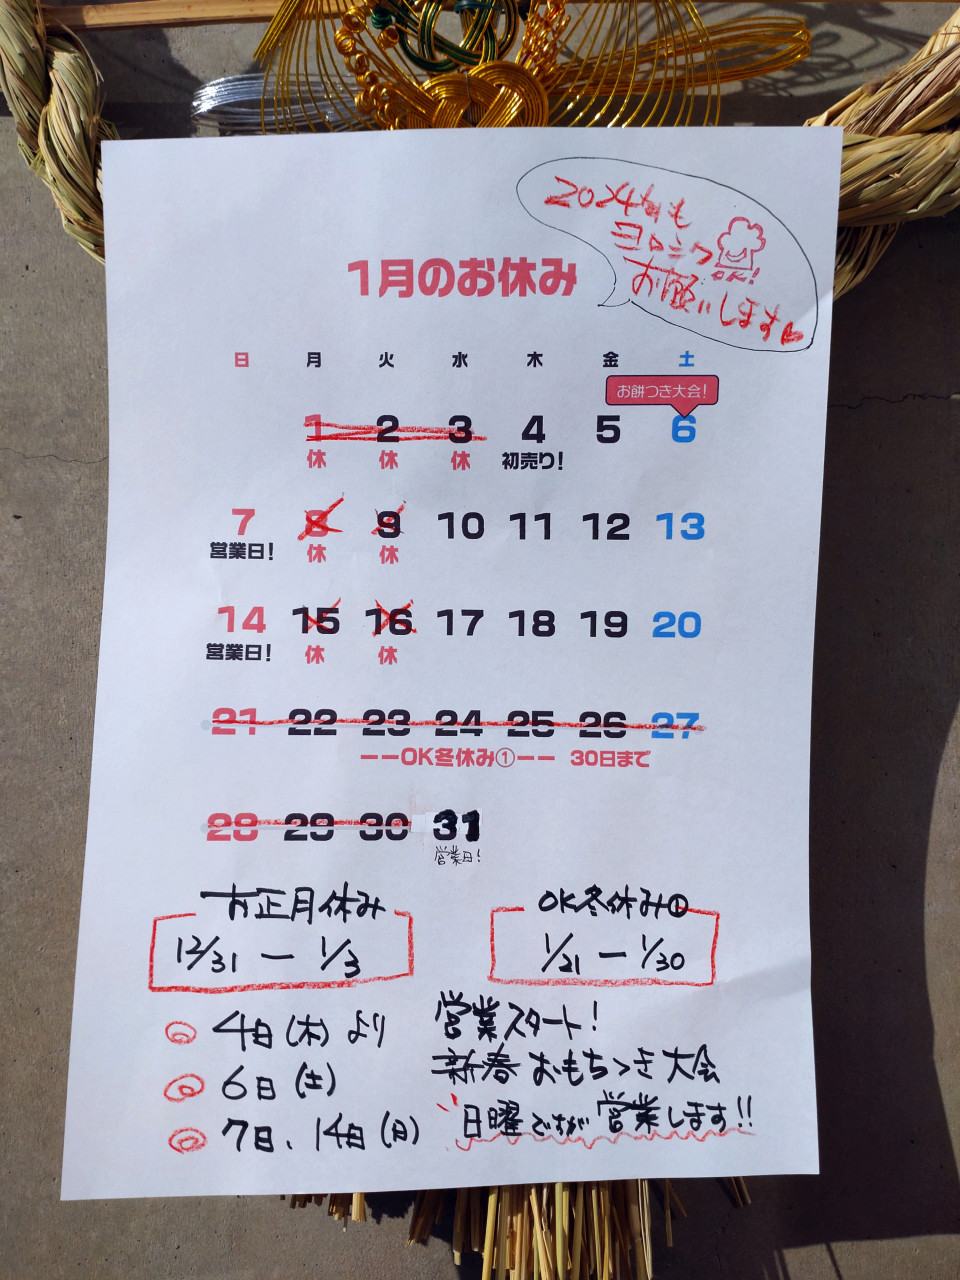 2024年も
ヨロシク
OK!
お願いします
1月のお休み
日 月 火 水 木 金 土
お餅つき大会!
1 2 3 4 5 6
休 休 休 初売り!
7 8 9 10 11 12 13
営業日! 休 休
14 15 16 17 18 19 20
営業日! 休 休
21 22 23 24 25 26 27
ーーOK冬休み①ーー 30日まで
28 29 30 31
営業日!
お正月休み OK冬休み①
12/31 ー 1/3 1/21 ー 1/30
4日(木)より 営業スタート!
6日(土) 新春おもちつき大会
7日、14日(月) 日曜ですが営業します!!